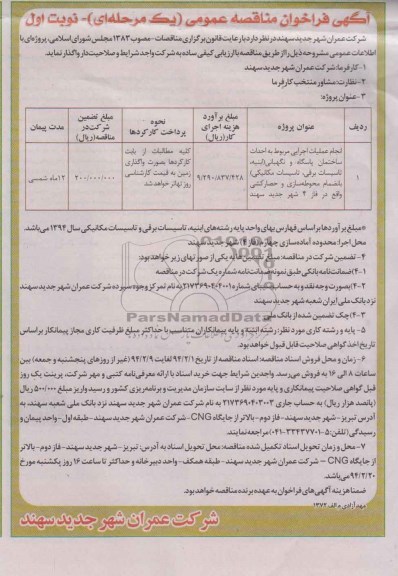 آگهی فراخوان مناقصه عمومی (یک مرحله‌ای)- نوبت اول
شرکت عمران شهر جدید سهند در نظر دارد با رعایت قانون برگزاری مناقصات - مصوب ۱۳۸۳ مجلس شورای اسلامی، پروژه‌ای با
اطلاعات عمومی مشروحه ذیل را از طریق مناقصه با ارزیابی کیفی ساده به شرکت واجد شرایط و صلاحیت‌دار واگذار نماید.
۱- کارفرما: شرکت عمران شهر جدید سهند
۲- نظارت: مشاور منتخب کارفرما
۳- عنوان پروژه:
ردیف
عنوان پروژه
مبلغ برآورد هزینه اجرای کار (ریال)
نحوه پرداخت کارکردها
مبلغ تضمین شرکت در مناقصه (ریال)
مدت پیمان
۱
انجام عملیات اجرایی مربوط به احداث
ساختمان پاسگاه و نگهبانی (ابنیه،
تاسیسات برقی، تاسیسات مکانیکی)
بانضمام محوطه‌سازی و حصارکشی
واقع در فاز ۴ شهر جدید سهند
۹/۴۹۰/۸۳۷/۴۲۸
کلیه مطالبات از بابت
کارکردها بصورت واگذاری
زمین به قیمت کارشناسی
روز تهاتر خواهد شد.
۲۰۰/۰۰۰/۰۰۰
۱۲ ماه شمسی
*مبلغ برآوردها براساس فهارس بهای واحد پایه رشته‌های ابنیه، تاسیسات برقی و تاسیسات مکانیکی سال ۱۳۹۴ می‌باشد.
محل اجرا: محدوده آماده‌سازی چهارم (فاز ۴) شهر جدید سهند
۴- تضمین شرکت در مناقصه: مبلغ تضمین‌ها به یکی از صورتهای زیر خواهد بود:
۴-۱) ضمانت‌نامه بانکی طبق نمونه ضمانت‌نامه شماره یک شرکت در مناقصه
۴-۲) بصورت وجه نقد و به حساب سیبای شماره ۲۱۷۳۶۹۰۴۰۲۰۰۱ به نام تمرکز وجوه سپرده شرکت عمران شهر جدید سهند
نزد بانک ملی ایران شعبه شهر جدید سهند
۴-۳) چک تضمین شده از بانک ملی
۵- پایه و رشته کاری مورد نظر: رشته ابنیه و پایه پیمانکاران متناسب با حداکثر مبلغ ظرفیت کاری مجاز پیمانکار براساس
تاریخ اخذ گواهی صلاحیت قابل قبول خواهد بود.
۶- زمان و محل فروش اسناد مناقصه: اسناد مناقصه از تاریخ ۹۴/۲/۱ لغایت ۹۴/۲/۹ (غیر از روزهای پنجشنبه و جمعه) بین
ساعات ۸ الی ۱۶ به فروش می‌رسد. واجدین شرایط جهت خرید اسناد با ارائه معرفی‌نامه کتبی و مهر شرکت، پرینت یک روز
قبل گواهی صلاحیت پیمانکاری و پایه مورد نظر از سایت سازمان مدیریت و برنامه‌ریزی کشور و رسید واریز مبلغ ۵۰۰/۰۰۰ ریال
(پانصد هزار ریال) به حساب جاری ۲۱۷۳۶۹۰۴۰۳۰۰۳ به نام شرکت عمران شهر جدید سهند نزد بانک ملی شعبه سهند، به
آدرس تبریز- شهر جدید سهند- فاز دوم- بالاتر از جایگاه CNG - شرکت عمران شهر جدید سهند- طبقه اول- واحد پیمان و
رسیدگی (تلفن: ۵-۳۳۴۳۷۷۰۱-۰۴۱) مراجعه نمایند.
۷- محل و زمان تحویل اسناد تکمیل شده مناقصه: محل تحویل اسناد به آدرس: تبریز- شهر جدید سهند- فاز دوم- بالاتر
از جایگاه CNG – شرکت عمران شهر جدید سهند- طبقه همکف- واحد دبیرخانه و حداکثر تا ساعت ۱۶ روز یکشنبه مورخ
۹۴/۲/۲۰ می‌باشد.
ضمنا هزینه آگهی‌های فراخوان به عهده برنده مناقصه خواهد بود.
شرکت عمران شهر جدید سهند
ParsNamadData